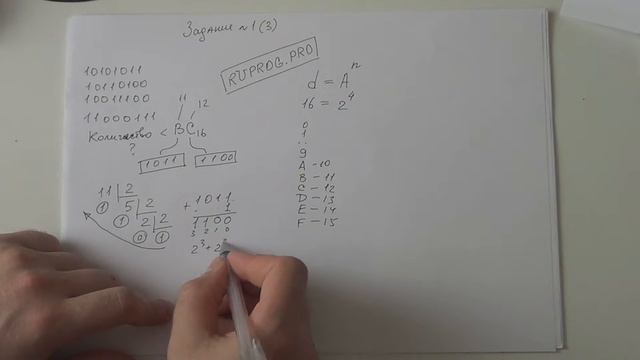 Задание №1 (3)
RUPRDG.PRO
10101011
10110100
10011100
11000111
11 12
Количество < BC16
?
1011 1100
d = Aⁿ
16 = 2⁴
0
1
..
9
A - 10
B - 11
C - 12
D - 13
E - 14
F - 15
11 2
1 5 2
1 2 2
0 1
+ 1011
1
1100
3 2 1 0
2³ + 2